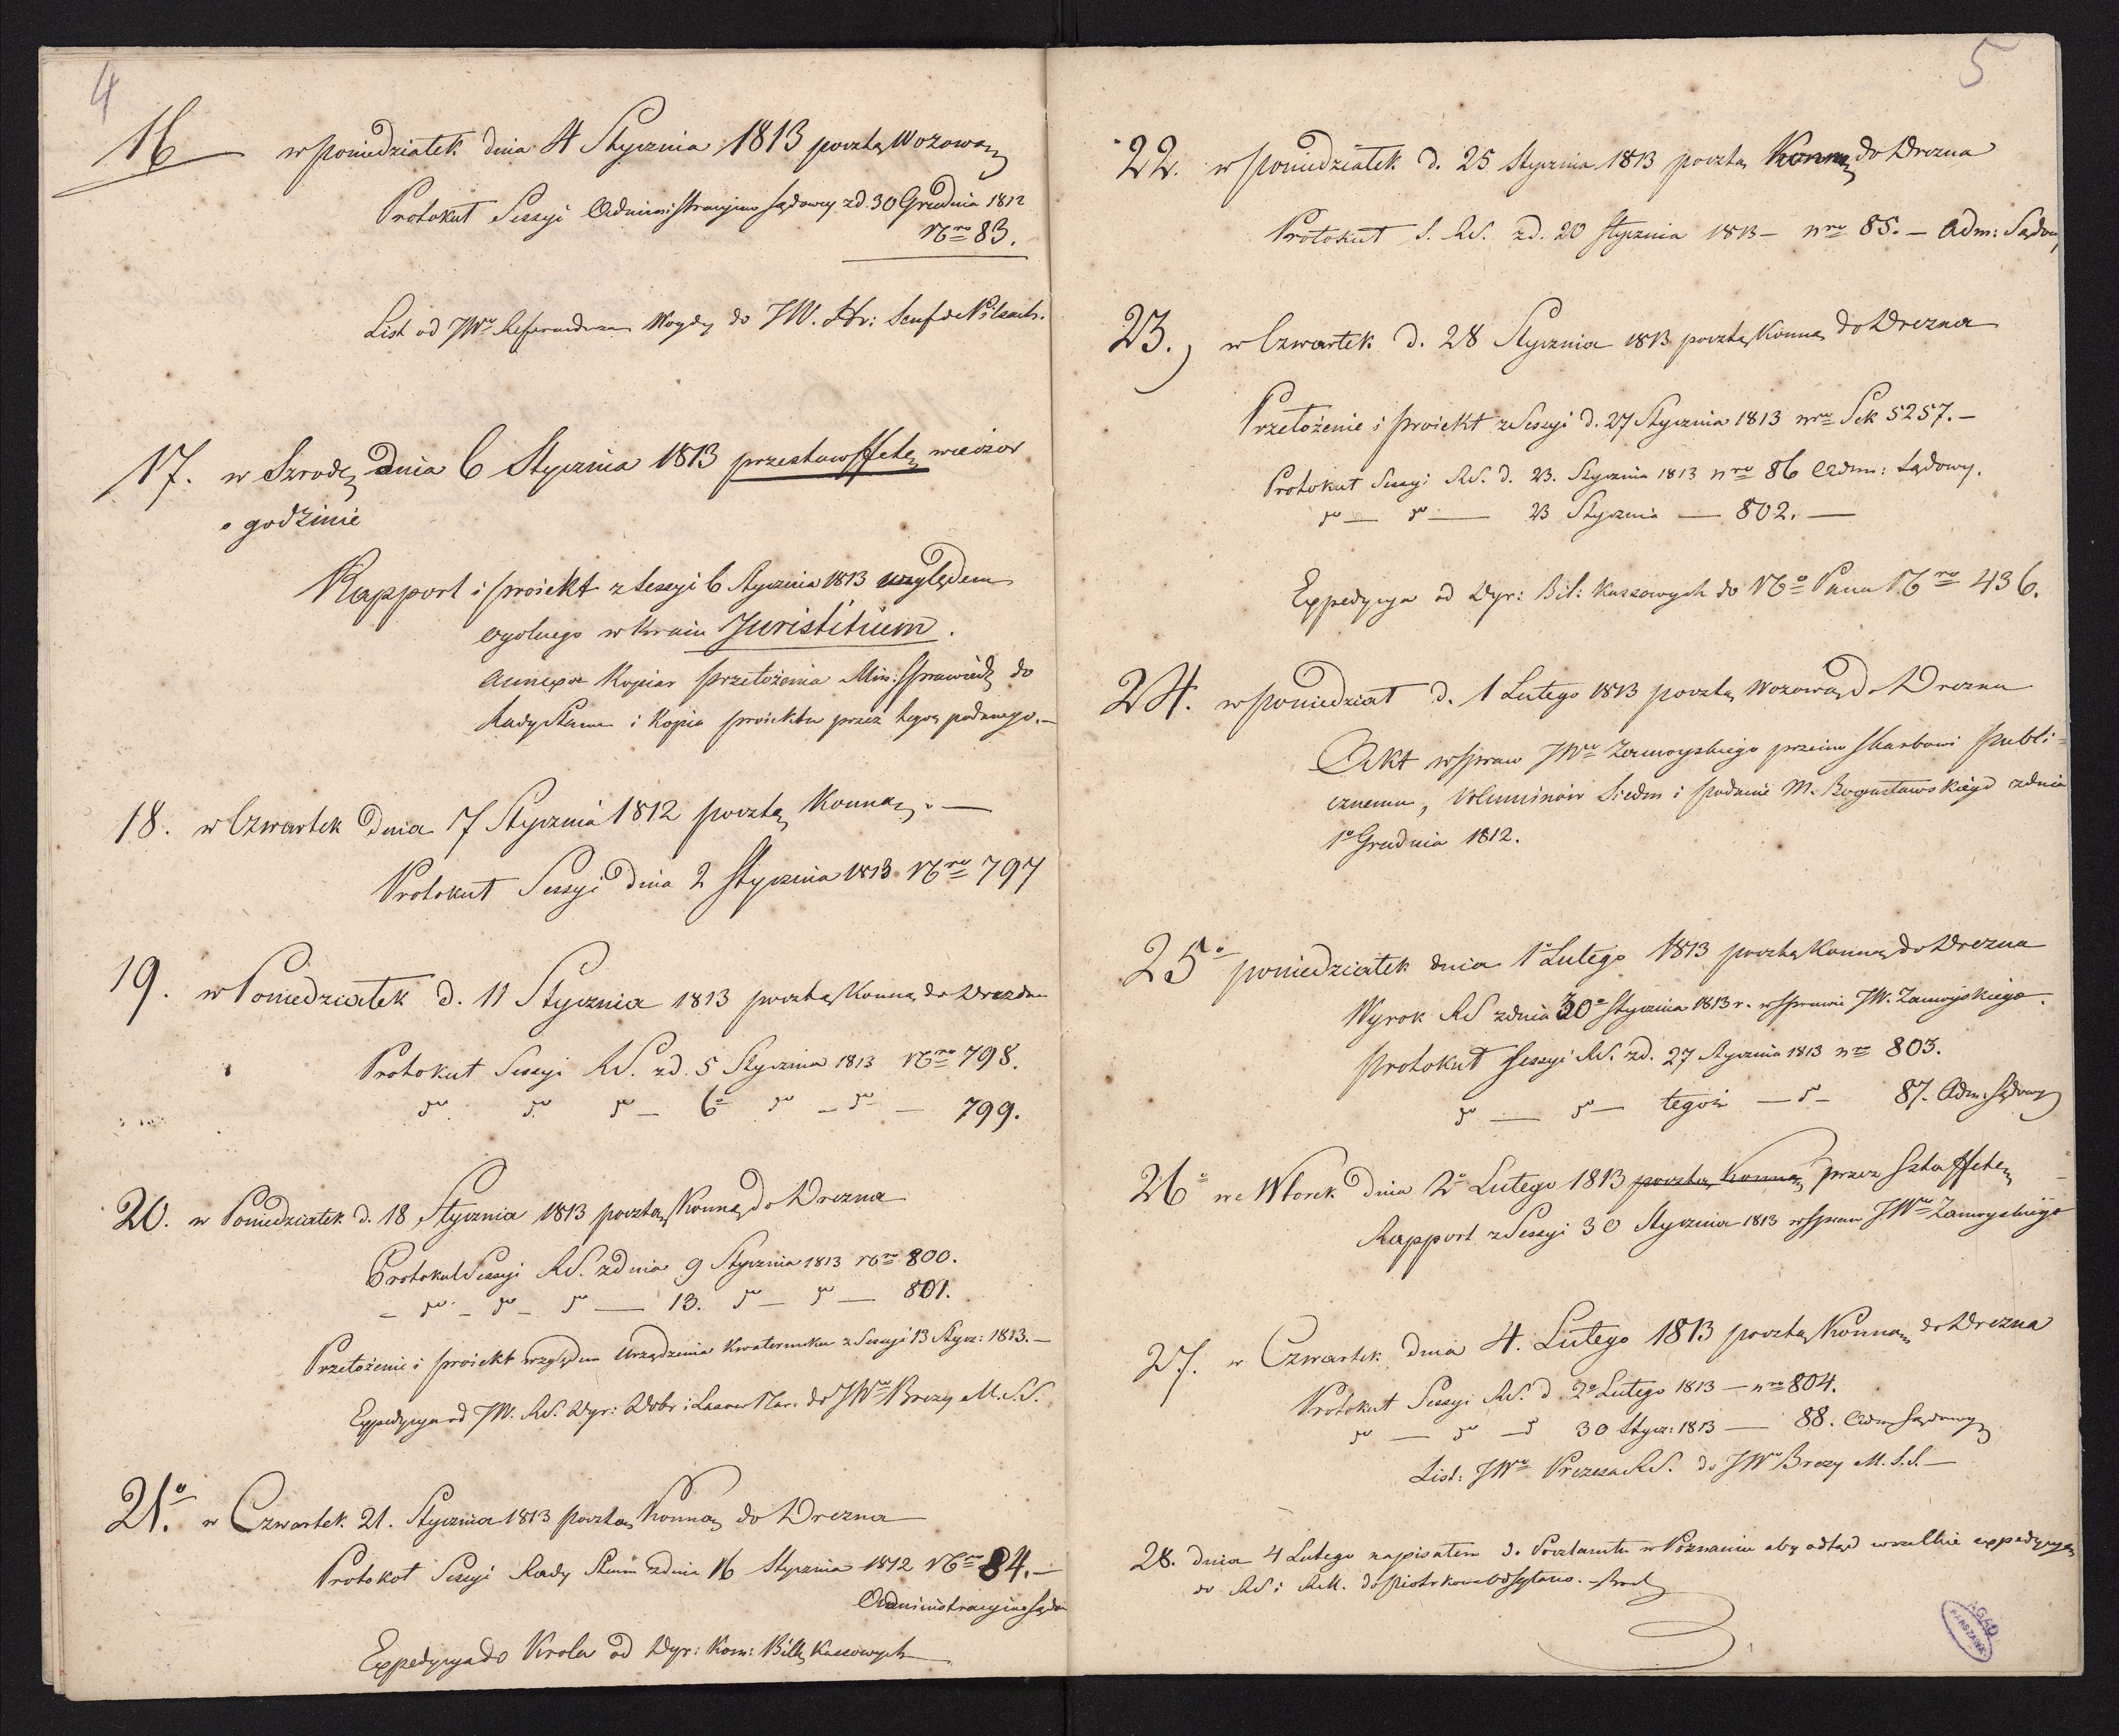 4
16 w Poniedziałek dnia 4 Stycznia 1813 pocztą Wozową
Protokuł Sessyi Administracyino Sądowey z d. 30 Grudnia 1812
Nro 83.
List od JWo Referendarza Woydy do JW. Hr: Senf de Pilsach.
17. w Szrodę dnia 6 Stycznia 1813 przesztawffetę wieczor
o godzinie
Rapport i proiekt z Sessyi 6 Stycznia 1813 względem
ogolnego w Kraiu Juristitium.
annexa Kopiar przełożenia Min: Sprawiedl do
Rady Stanu i Kopia proiektu przez tegoż podanego.—
18. w Czwartek dnia 7 Stycznia 1812 pocztą Konną.—
Protokuł Sessyi dnia 2 Stycznia 1813 Nro 797
19. w Poniedziałek d. 11 Stycznia 1813 pocztą Konną do Drezdna
Protokuł Sessyi RS. z d. 5 Stycznia 1813 Nro 798.
6o — 799.
20. w Poniedziałek d. 18 Stycznia 1813 pocztą Konną do Drezna
Protokuł Sessyi RS. z dnia 9 Stycznia 1813 Nro 800.
— 13. — 801.
Przełożenie i proiekt względem Urządzenia Kwaterunku z Sessyi 13 Stycz: 1813.—
Expedycya od JW. RS. Dyr: Dobr i Lasow Nar. do JWo Brezy M.S.S.
21.o w Czwartek 21. Stycznia 1813 pocztą Konną do Drezna
Protokoł Sessyi Rady Stanu z dnia 16 Stycznia 1812 Nro 84.—
Administracyino Sądow
Expedycya do Krola od Dyr: Kom: Bill Kassowych
5
22. w Poniedziałek d. 25 Stycznia 1813 pocztą Konną do Drezna
Protokuł S. RS. z d. 20 Stycznia 1813 — nro 85. — Adm: Sądowy
23.) w Czwartek d. 28 Stycznia 1813 pocztą Konną do Drezna
Przełożenie i proiekt z Sessyi d. 27 Stycznia 1813 nro Sek 5257.—
Protokuł Sessyi RS. d. 23. Stycznia 1813 nro 86 Adm: Sądowy.
23 Stycznia — 802.—
Expedycya od Dyr: Bil: Kassowych do No Pana Nro 436.
24. w Poniedział d. 1 Lutego 1813 pocztą Wozową do Drezna
Akt w Spraw JWo Zamoyskiego przeciw Skarbowi Publi=
cznemu, Voluminow Siedm i podanie M. Bogusławskiego z dnia
1o Grudnia 1812.
25o poniedziałek dnia 1o Lutego 1813 pocztą Konną do Drezna
Wyrok RS z dnia 30o Stycznia 1813 r. w Sprawie JW. Zamoyskiego.
Protokuł Sessyi RS. z d. 27 Stycznia 1813 nro 803.
tegoż — 87. Adm: Sądowy
26o we Wtorek dnia 2o Lutego 1813 pocztą Konną przez Sztaffetę
Rapport z Sessyi 30 Stycznia 1813 w Spraw JWo Zamoyskiego
27. w Czwartek dnia 4. Lutego 1813 pocztą Konną do Drezna
Protokuł Sessyi RS. d 2o Lutego 1813 — nro 804.
30 Stycz: 1813 — 88. Adm Sądowy
List: JWo Prezesa RS. do JWo Brezy M.S.S.—
28. dnia 4 Lutego napisałem do Pocztamtu w Poznaniu aby odtąd wszelkie expedycye
do RS i RM. do Piotrkowa odsyłano.
AGAD
WARSZAWA